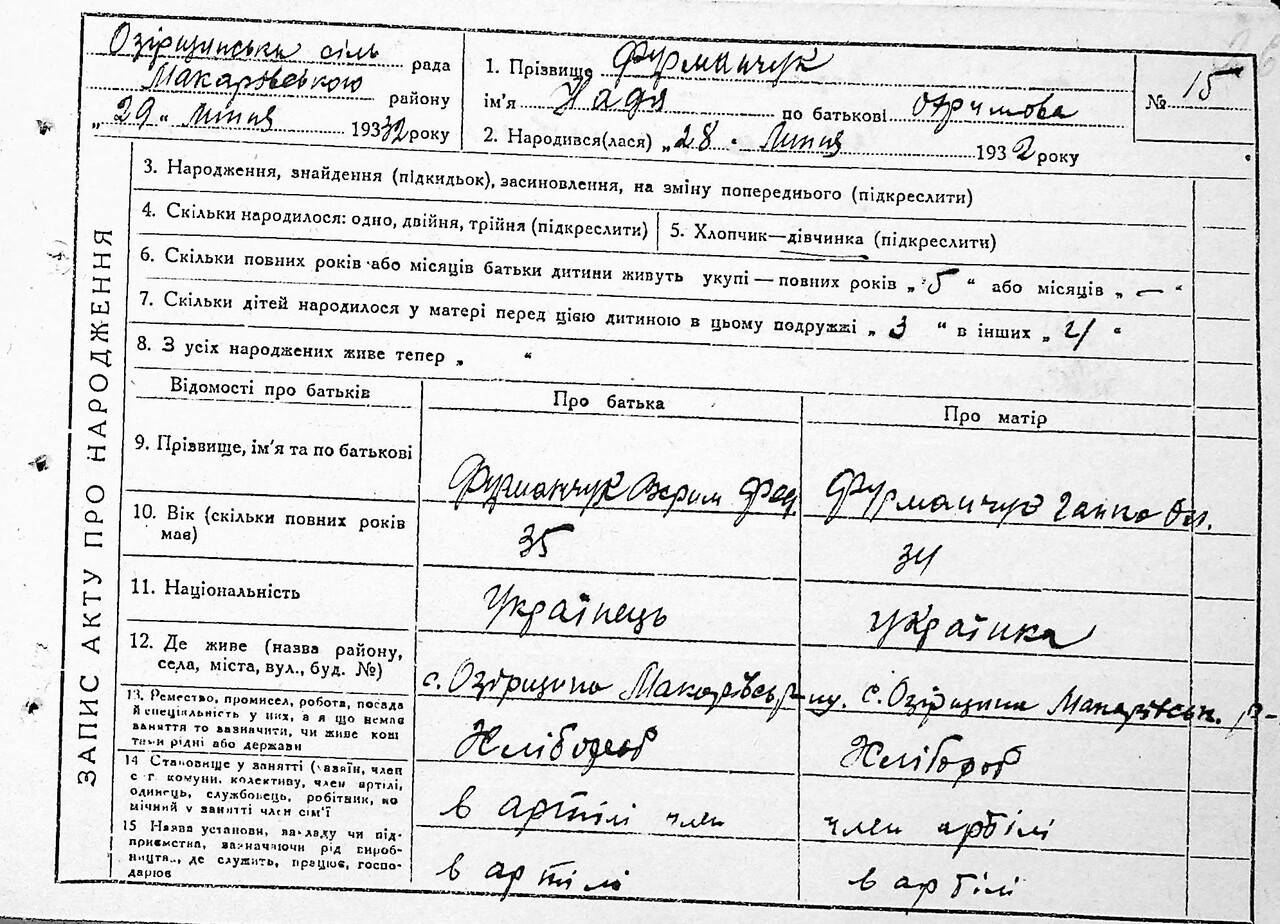 Озірщинська сіль рада
Макарівською району
„29“ Липня 1932 року
1. Прізвище Фурманчук
ім'я Надя по батькові
2. Народився(лася) „28. Липня 1932 року
№ 15
ЗАПИС АКТУ ПРО НАРОДЖЕННЯ
3. Народження, знайдення (підкидьок), засиновлення, на зміну попереднього (підкреслити)
4. Скільки народилося: одно, двійня, трійня (підкреслити)
5. Хлопчик—дівчинка (підкреслити)
6. Скільки повних років або місяців батьки дитини живуть укупі — повних років „5“ або місяців „—“
7. Скільки дітей народилося у матері перед цією дитиною в цьому подружжі „3“ в інших „ “
8. З усіх народжених живе тепер „ “
Відомості про батьків
Про батька
Про матір
9. Прізвище, ім'я та по батькові
Фурманчук Фед.
Фурманчук Ганка
10. Вік (скільки повних років
має)
35
34
11. Національність
Українець
Українка
12. Де живе (назва району,
села, міста, вул., буд. №)
с. Озірщина
с. Озірщина
13. Ремество, промисел, робота, посада
й спеціальність у них, а якщо немає
заняття то вазначити, чи живе кош
тами рідні або держави
Хлібороб
Хлібороб
14 Становище у занятті (хазяїн, член
с г. комуни, колективу, член артілі,
одинець, службовець, робітник, по
мічний у занятті член сім'ї
в артілі член
член артілі
15 Назва установи, закладу чи під-
приємства, вазначаючи рід вироб-
ництва, де служить, працює, госпо-
дарює
в артілі
в артілі